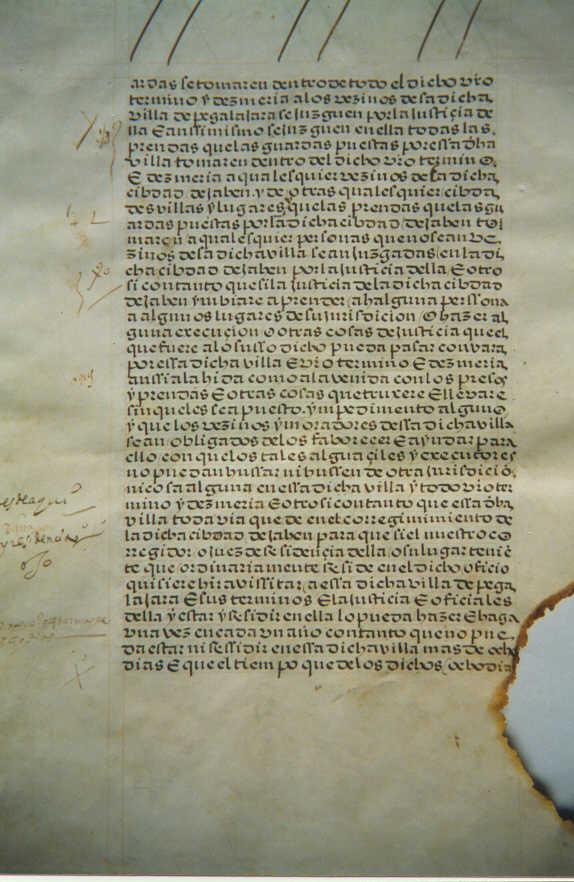 ardas se tomaren dentro de todo el dicho vro
termino y dezmeria a los vezinos desa dicha
villa de pegalajara se juzguen por la justiçia de
lla E ansimismo se juzguen en ella todas las
prendas que las guardas puestas por essa dha
villa tomaren dentro del dicho vro termino
E dezmeria a qualesquier vezinos de la dicha
cibdad de Jahen y de otras qualesquier cibda
des villas y lugares y que las prendas que las gu
ardas puestas por la dicha cibdad de Jahen to
maren a qualesquier personas que no sean ve
zinos desa dicha villa sean juzgadas en la di
cha cibdad de Jahen por la justicia della E otro
si con tanto que si la justicia de la dicha cibdad
de Jahen ynviare a prender a halguna perssona
a algunos lugares de su jurisdicion o hazer al
guna execucion o otras cosas de justicia que el
que fuere a lo susso dicho pueda pasar con vara
por essa dicha villa E vro termino E dezmeria
anssi a la hida como a la venida con los presos
y prendas E otras cosas que truxere E llevare
sin que les sea puesto ynpedimento alguno
y que los vezinos y moradores dessa dicha villa
sean obligados de los faborecer E ayudar para
ello con que los tales alguaçiles y executores
no puedan bussar ni bussen de otra jurisdicio
ni cosa alguna en essa dicha villa y todo vro ter
mino y dezmeria E otrosi con tanto que essa dha
villa todavia que de en el corregimimiento de
la dicha cibdad de Jahen para que si el nuestro co
rregidor o juez de residençia della o su lugartenie
te que ordinariamente reside en el dicho oficio
quisiere hir a vissitar a essa dicha villa de pega
lajara E sus terminos E la justicia E oficiales
della y estar y residir en ella lo pueda hazer E haga
vna vez en cada vn año con tanto que no pue
da estar ni ressidir en essa dicha villa mas de ocho
dias E que el tiempo que de los dichos ocho dia